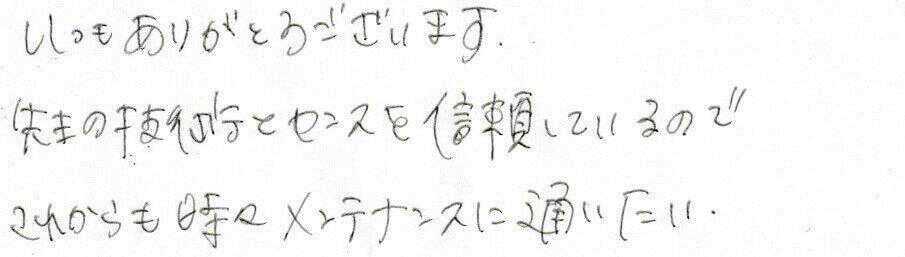 いつもありがとうございます.
先生の技術とセンスを信頼しているので
これからも時々メンテナンスに通いたい.